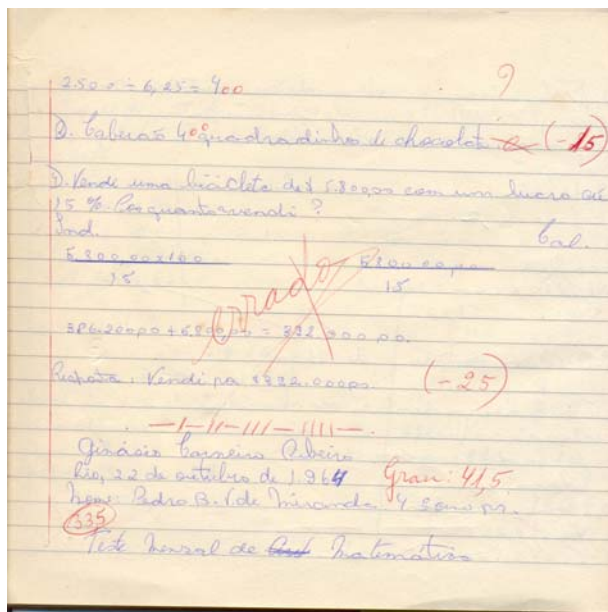 2500 ÷ 6,25 = 400
R. Caberão 400 quadradinhos de chocolate. (-15)
D. Vendi uma bicicleta de $ 5.800,00 com um lucro de
15 %. Por quanto a vendi?
Ind. Cal.
5.800,00 x 100 5800 00,00
15 15
errado
386.200,00 + 5.800,00 = 392.000,00.
Resposta. Vendi por $392.000,00. (-25)
Ginásio Carneiro Ribeiro
Rio, 22 de outubro de 1.964 Grau: 41,5
Nome: Pedro B. de Miranda 4
335
Teste Mensal de Matemática